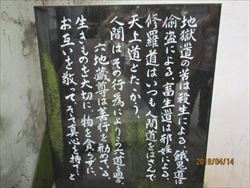 地獄道の苦は殺生による、餓鬼道は
偸盗による、畜生道は邪婬による、
修羅道はいつも人間道をはさんで
天上道とたゝかう
人間はその行為により六道を
六地蔵尊は善行を勧めている
生きものを大切に、物を食うずに、
お互いを敬って真心を持して
2018/04/14